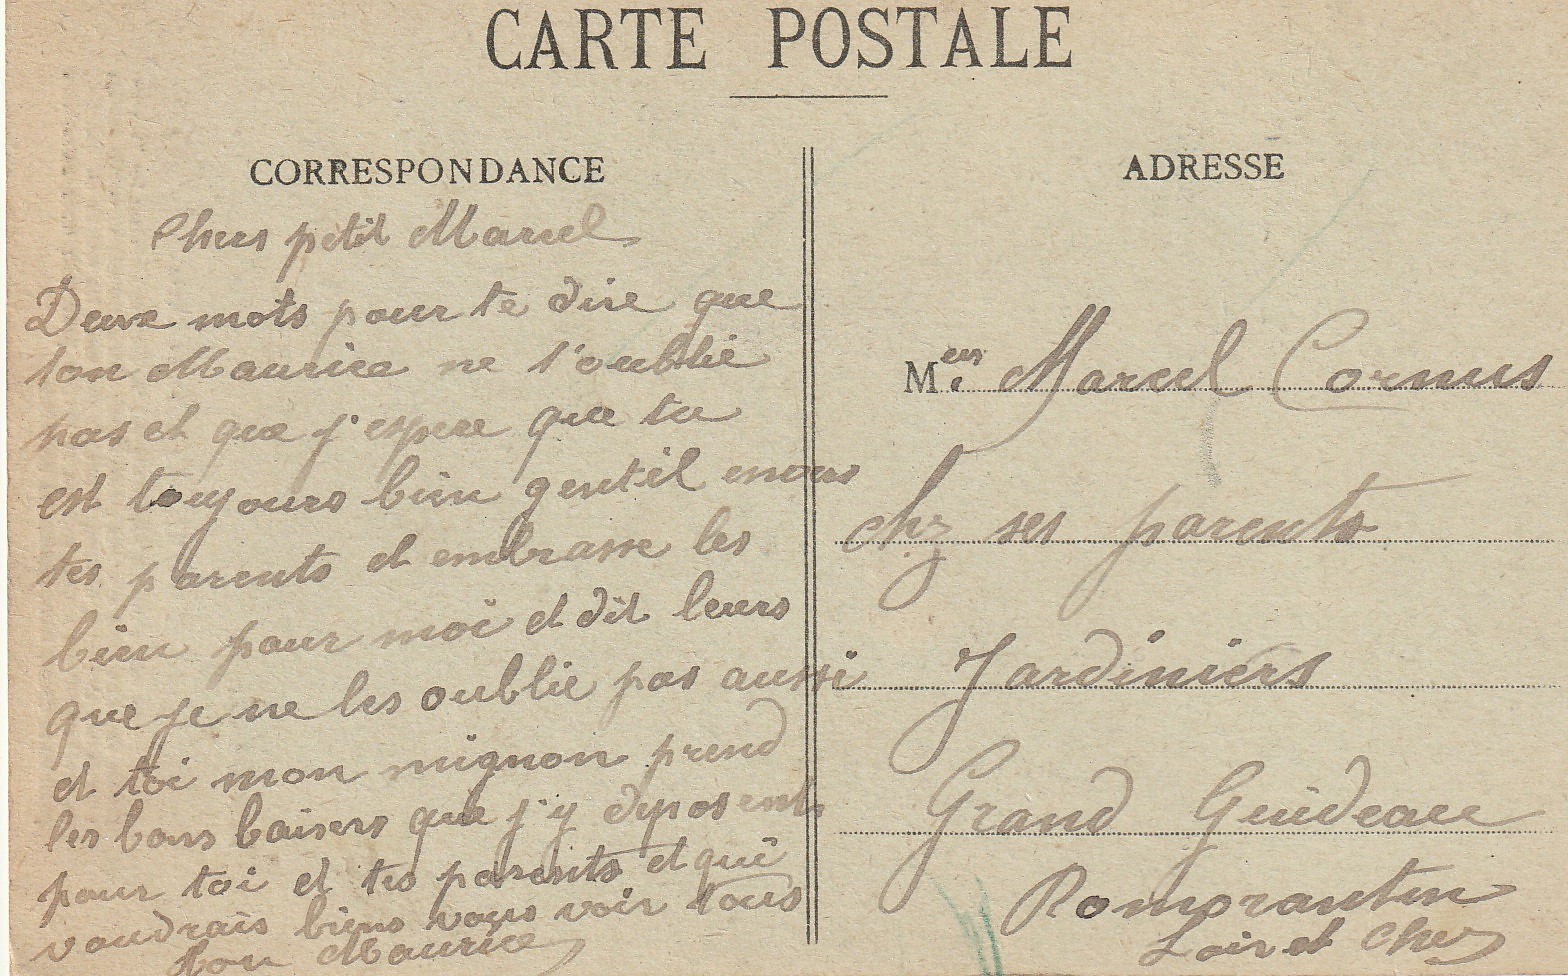 CARTE POSTALE
CORRESPONDANCE
Chers petit Marcel
Deux mots pour te dire que
ton Maurice ne t'oublie
pas et que j'espere que tu
est toujours bien gentil envers
tes parents et embrasse les
bien pour moi et dit leurs
que je ne les oublie pas aussi
et toi mon mignon prend
les bons baisers que j'y deposent
pour toi et tes parents et qui
voudrais biens vous voir tous
ton Maurice
ADRESSE
Meur Marcel Cornus
chz ses parents
Jardiniers
Grand Guideau
Romorantin
Loir et Cher